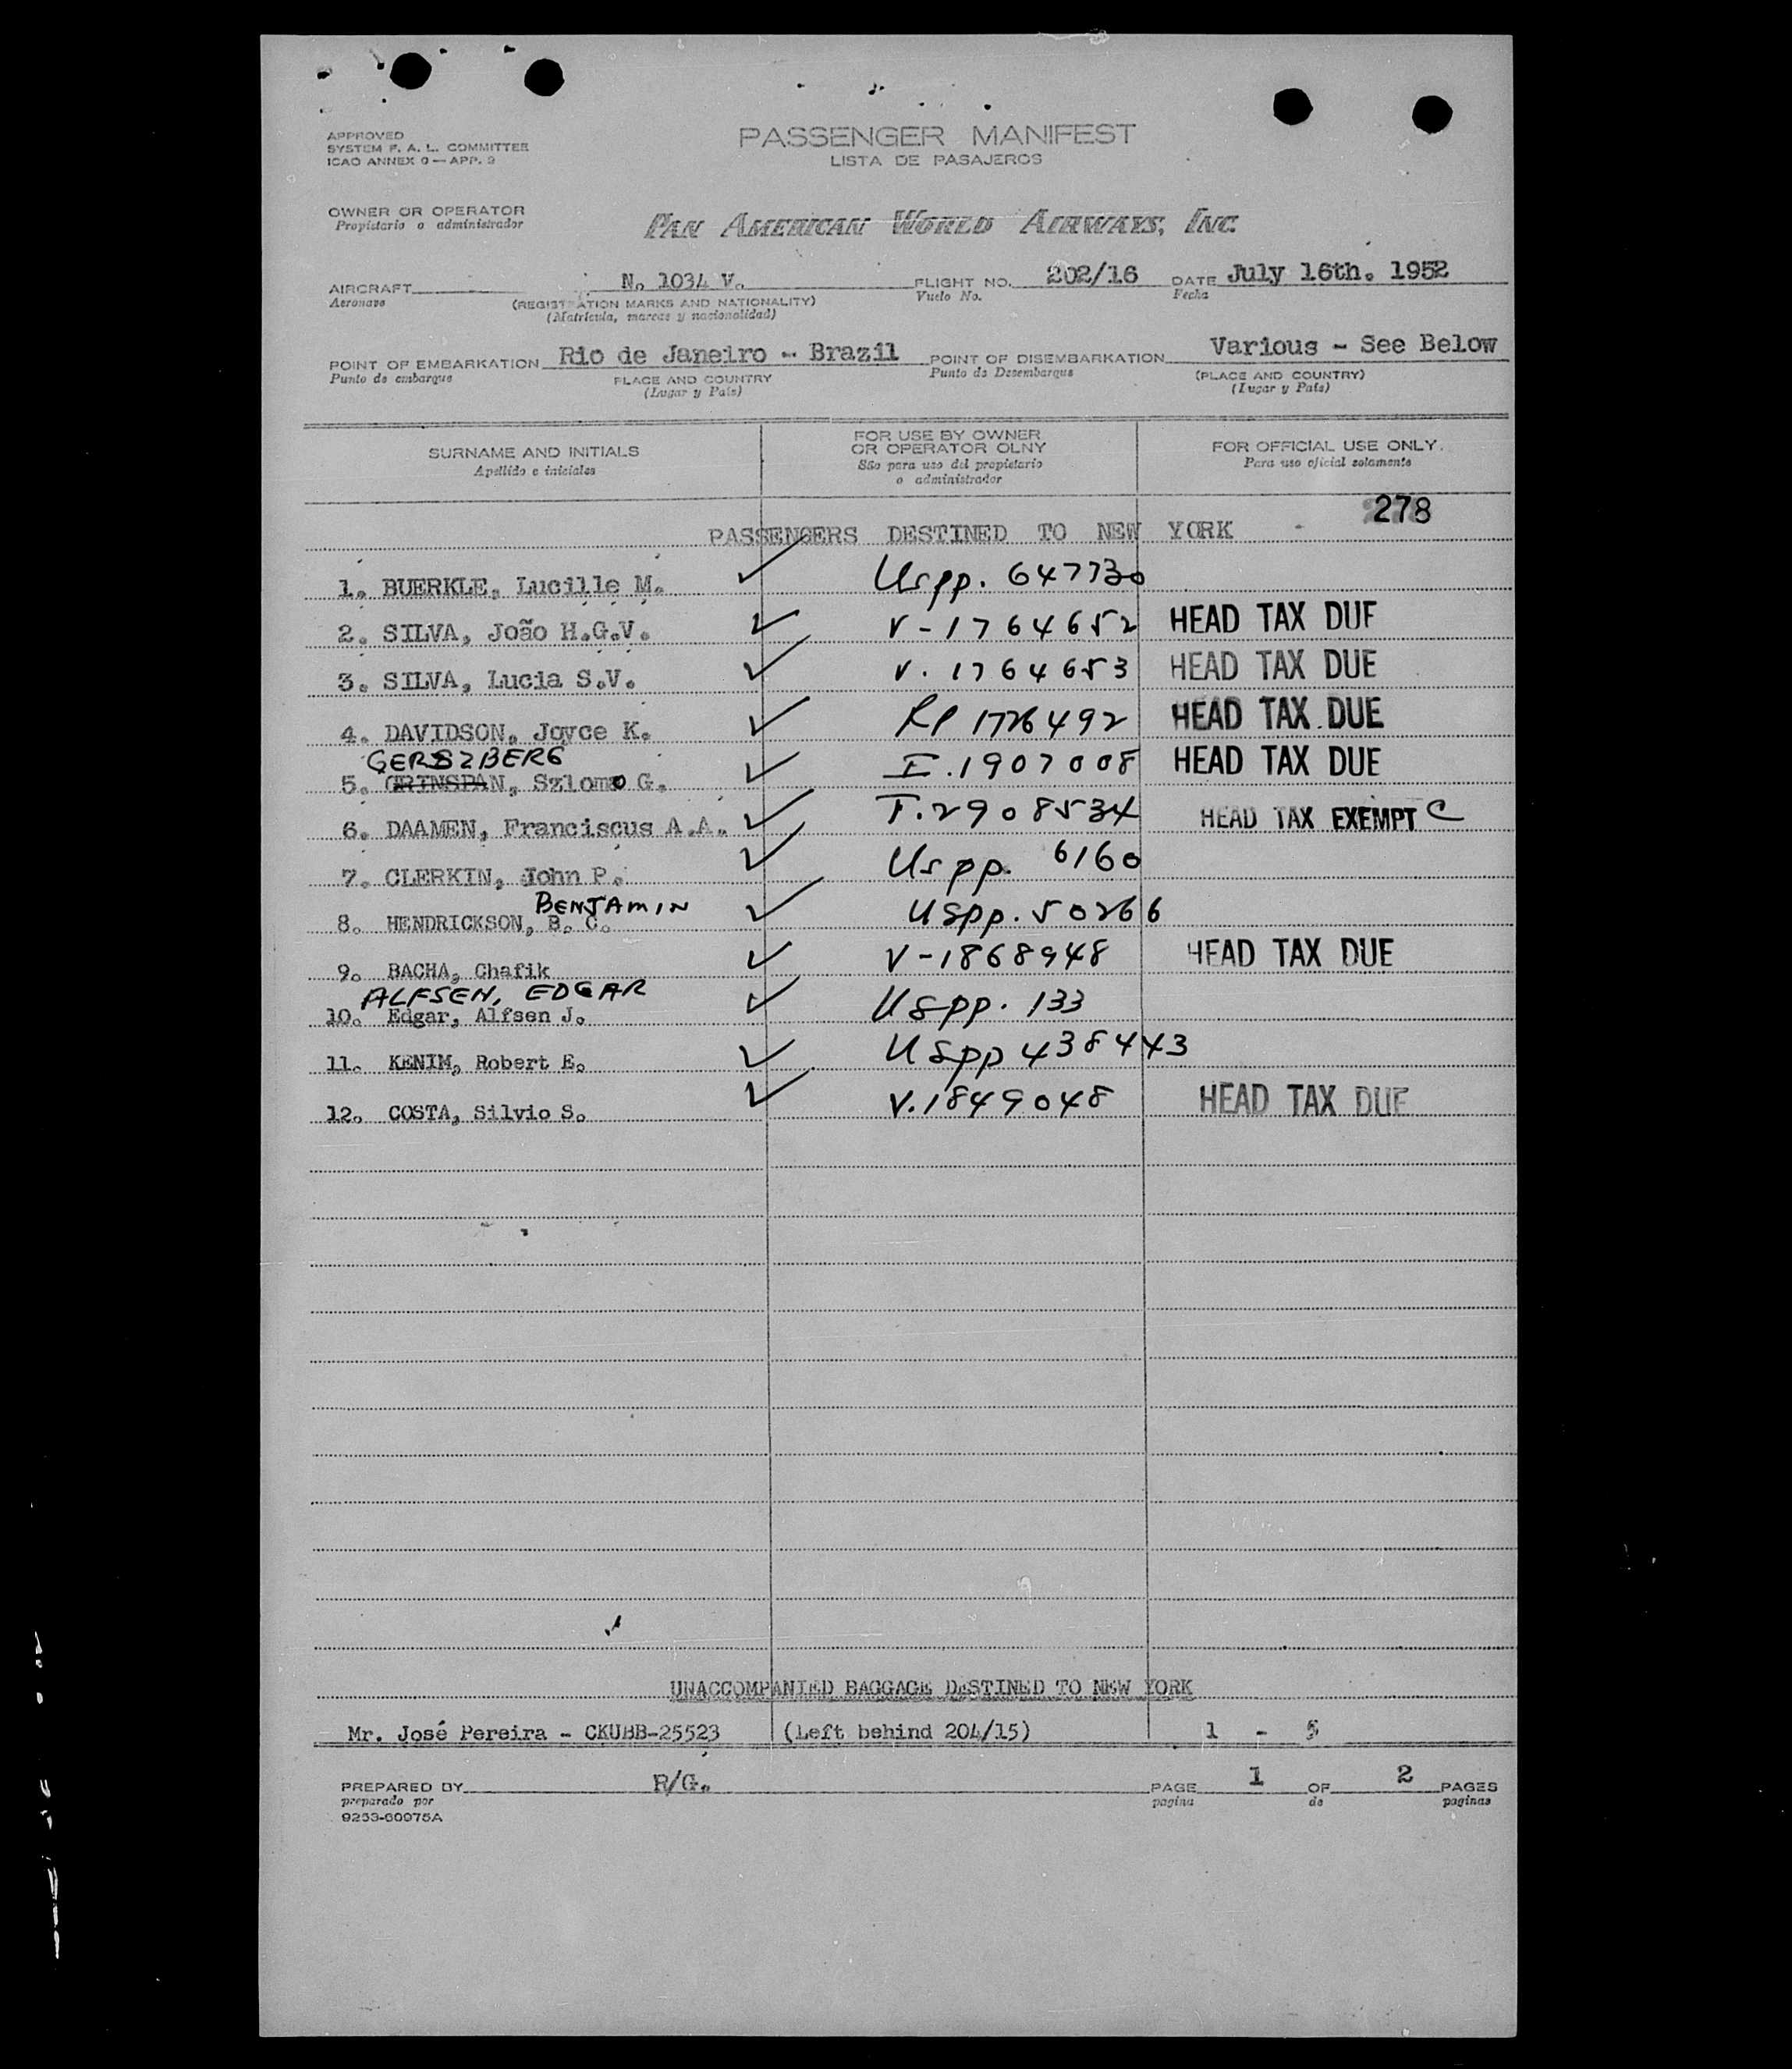 APPROVED
SYSTEM F. A. L. COMMITTEE
ICAO ANNEX 9 — APP. 2
PASSENGER MANIFEST
LISTA DE PASAJEROS
OWNER OR OPERATOR
Propietario o administrador
PAN AMERICAN WORLD AIRWAYS, INC.
AIRCRAFT N. 1034 V. FLIGHT NO. 202/16 DATE July 16th. 1952
Aeronave (REGISTRATION MARKS AND NATIONALITY) Vuelo No. Fecha
(Matrícula, marcas y nacionalidad)
POINT OF EMBARKATION Rio de Janeiro - Brazil POINT OF DISEMBARKATION Various - See Below
Punto de embarque PLACE AND COUNTRY Punto de Desembarque (PLACE AND COUNTRY)
(Lugar y País) (Lugar y País)
SURNAME AND INITIALS FOR USE BY OWNER OR OPERATOR OLNY FOR OFFICIAL USE ONLY.
Apellido e iniciales Sño para uso del propietario o administrador Para uso oficial solamente
278
PASSENGERS DESTINED TO NEW YORK -
1. BUERKLE, Lucille M. ✓ Uspp. 647730
2. SILVA, João H.G.V. ✓ V-1764652 HEAD TAX DUE
3. SILVA, Lucia S.V. ✓ V. 1764653 HEAD TAX DUE
4. DAVIDSON, Joyce K. ✓ RP 1726492 HEAD TAX DUE
GERSZBERG
5. GRINSPAN, Szlomo G. ✓ I.1907008 HEAD TAX DUE
6. DAAMEN, Franciscus A.A. ✓ T.2908534 HEAD TAX EXEMPT C
7. CLERKIN, John P. ✓ Uspp. 6160
BENJAMIN
8. HENDRICKSON, B. C. ✓ USpp. 50266
9. BACHA, Chafik ✓ V-1868948 HEAD TAX DUE
ALFSEN, EDGAR
10. Edgar, Alfsen J. ✓ USpp. 133
11. KENIM, Robert E. ✓ USpp 438443
12. COSTA, Silvio S. ✓ V.1849048 HEAD TAX DUE
UNACCOMPANIED BAGGAGE DESTINED TO NEW YORK
Mr. José Pereira - CKUBB-25523 (Left behind 204/15) 1 - 5
PREPARED BY R/G. PAGE 1 OF 2 PAGES
preparado por pagina de paginas
9253-60075A